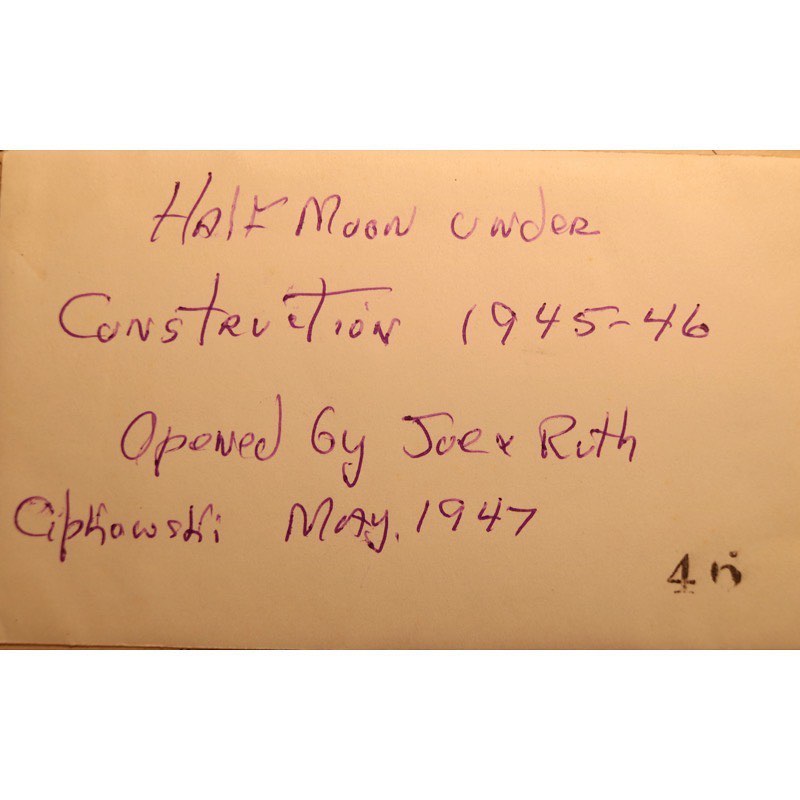 Half Moon under
Construction 1945-46
Opened by Joe & Ruth
Cipkowski May, 1947
4